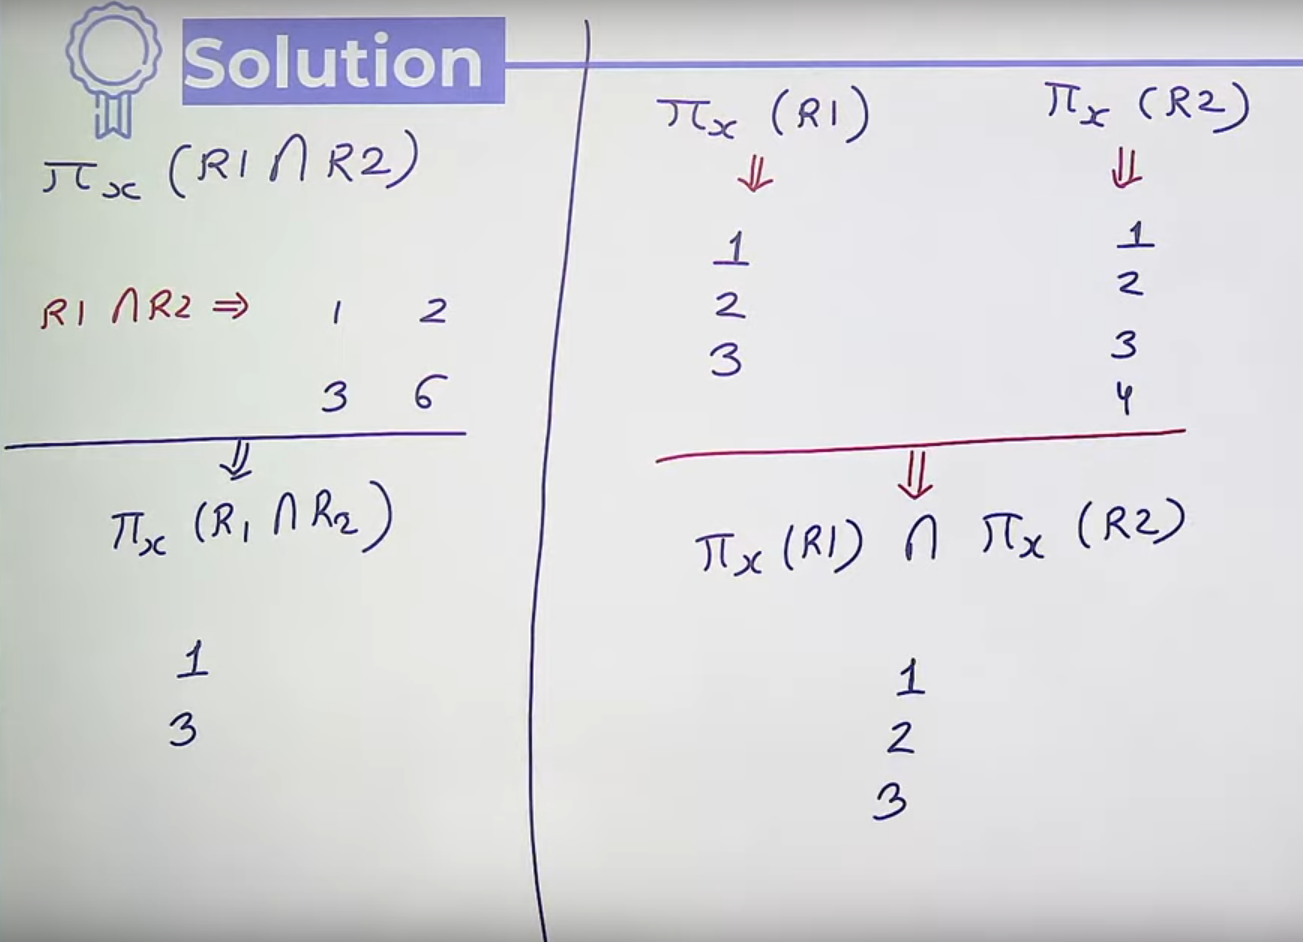 Solution
πx (R1 ∩ R2)
R1 ∩ R2 ⇒ 1 2
3 6
⇓
πx (R1 ∩ R2)
1
3
πx (R1) πx (R2)
⇓ ⇓
1 1
2 2
3 3
4
⇓
πx (R1) ∩ πx (R2)
1
2
3